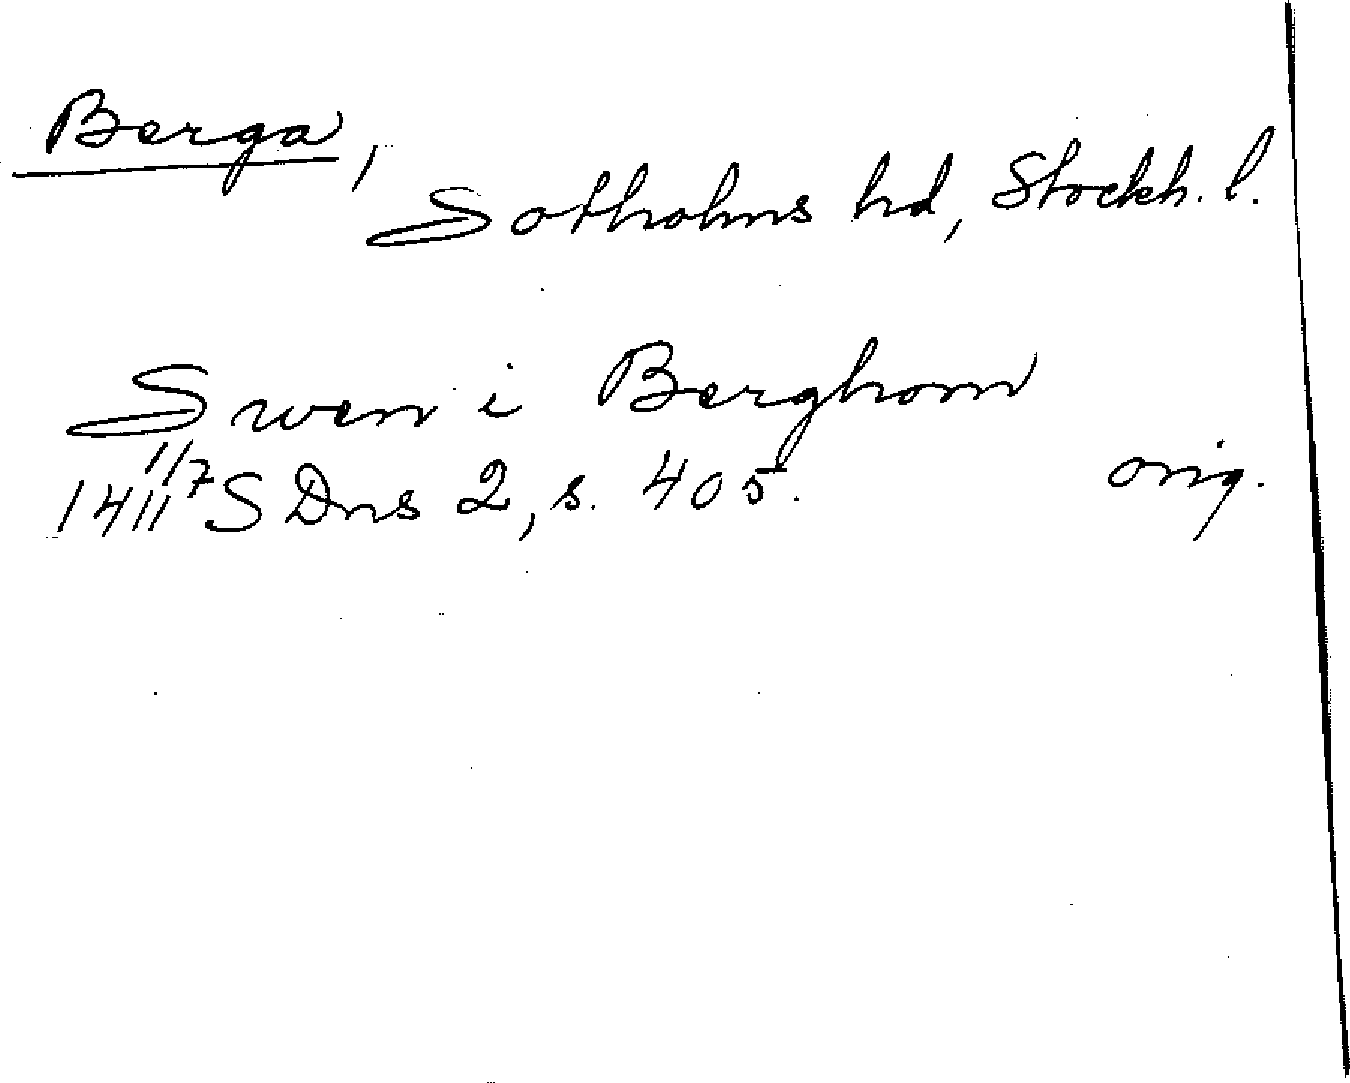 Berga,
Sotholms hd, Stockh. l.
Swen i Berghom
1411 1/7 SDns 2, s. 405. orig.